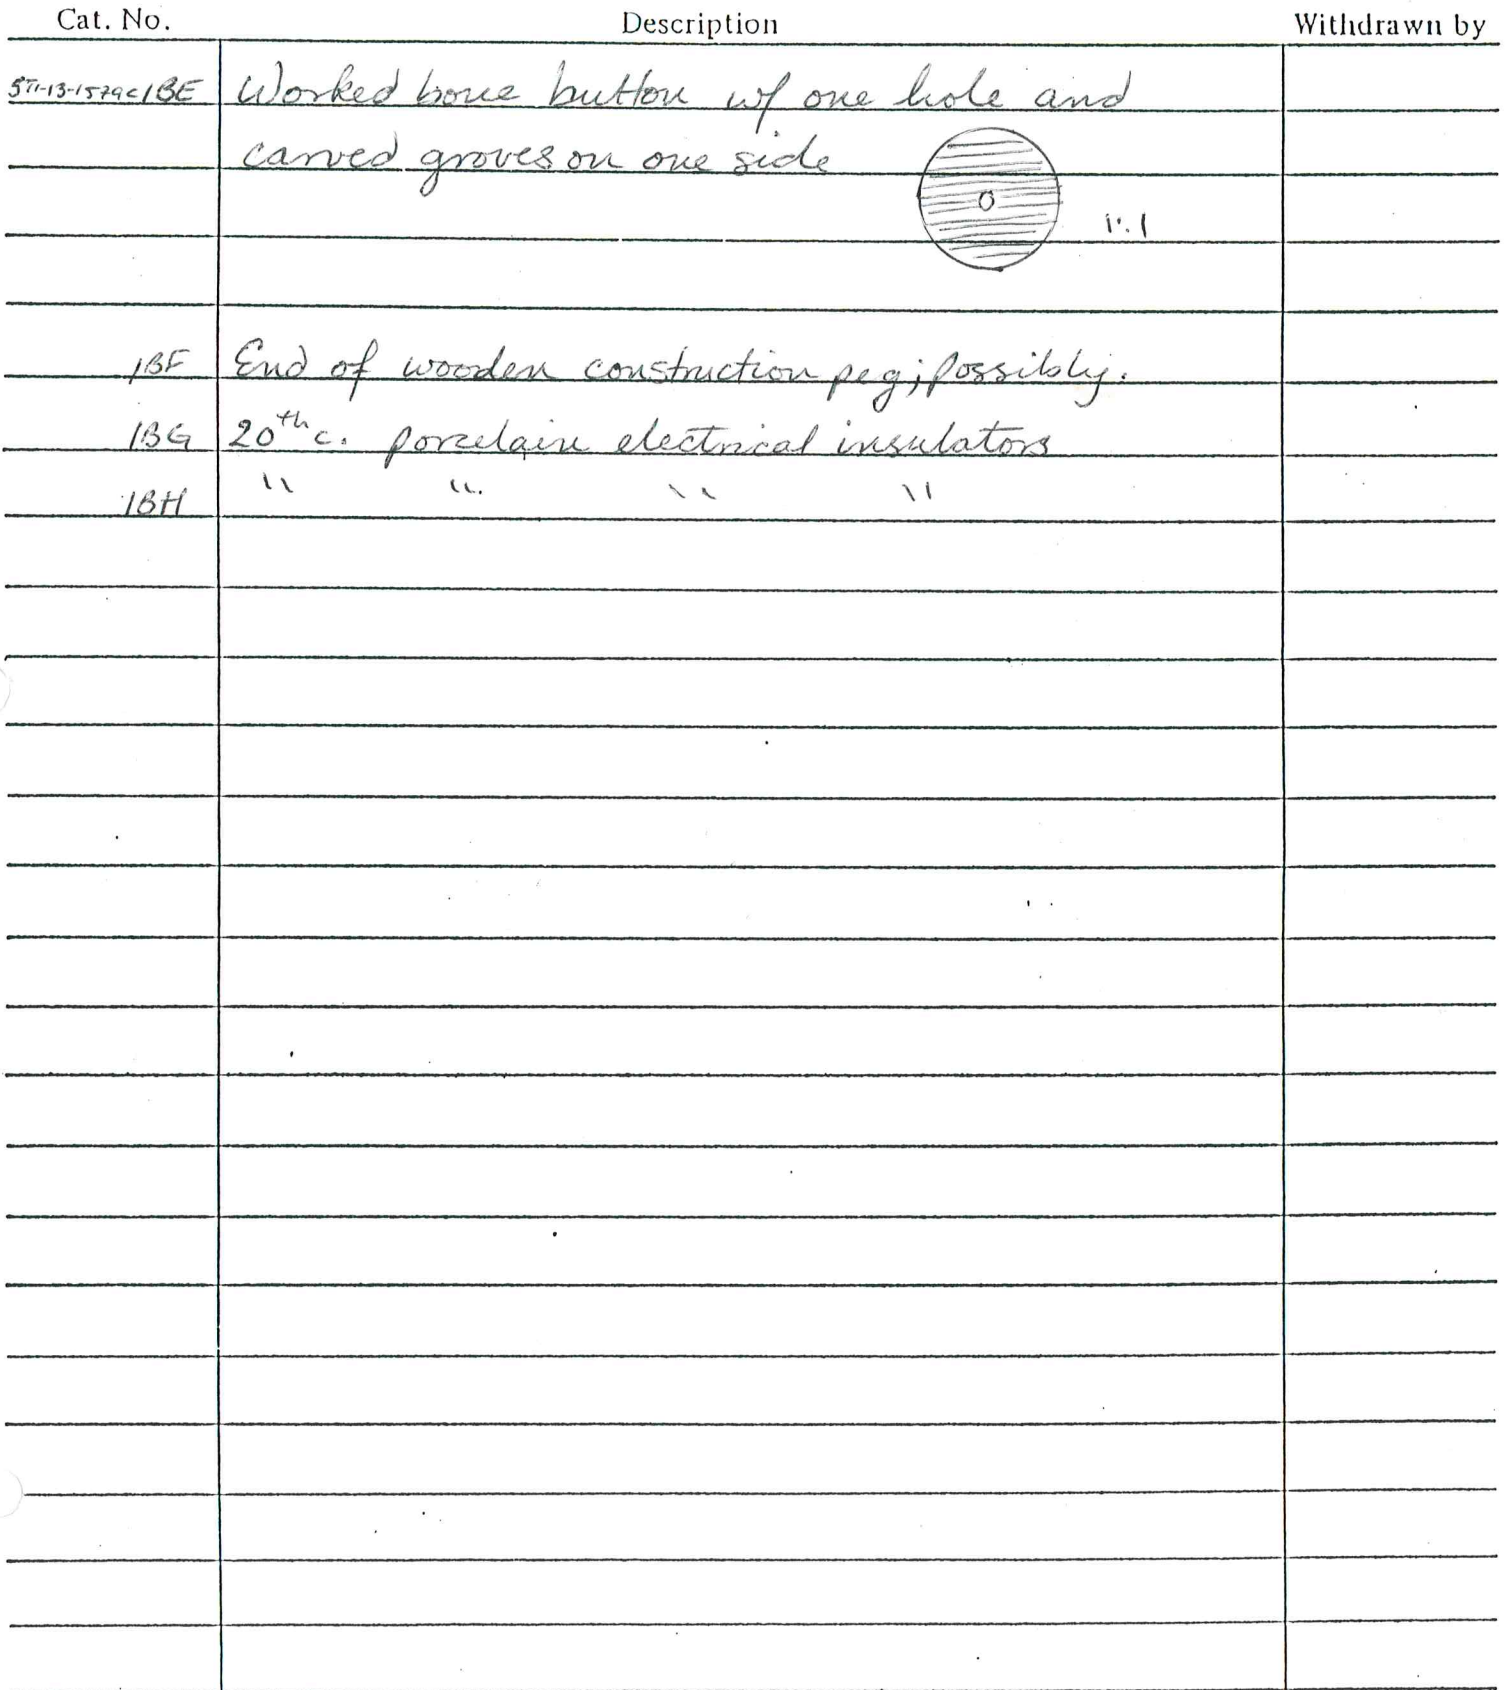 Cat. No. Description Withdrawn by
ST1-13-1579C1BE Worked bone button w/ one hole and
carved groves on one side
1:1
1BF End of wooden construction peg; possibly.
1BG 20th c. porcelain electrical insulators
1BH " " " "